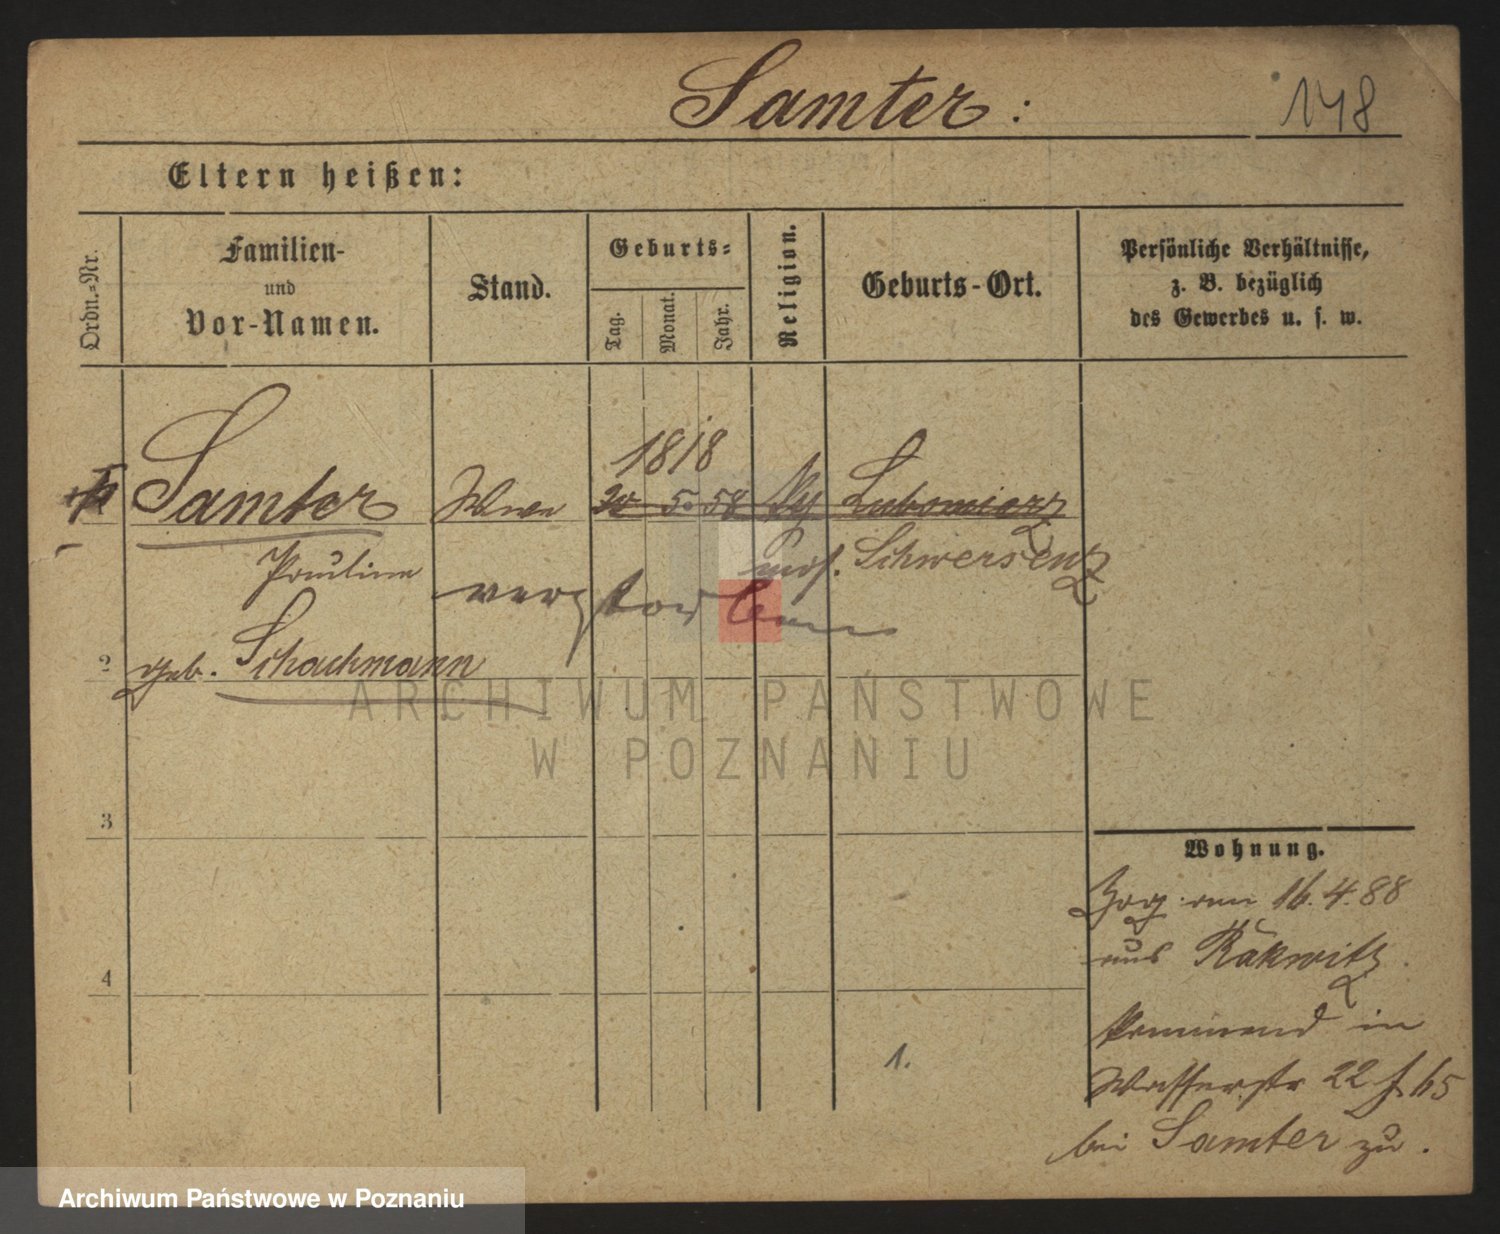 Samter:
148
Eltern heißen:
Ordn.=Nr.
Familien-
und
Vor-Namen.
Stand.
Geburts=
Tag.
Monat.
Jahr.
Religion.
Geburts-Ort.
Persönliche Verhältnisse,
z. B. bezüglich
des Gewerbes u. s. w.
1818
Samter Wwe 5. 58 Lubomierz
mos. Schwersenz
Pauline
verstorben
2 geb. Schachmann
3
Wohnung.
Zog am 16.4.88
aus Rakwitz
4
kommend in
1.
Wasserstr 22 f. 65
bei Samter zu.
ARCHIWUM PAŃSTWOWE
W POZNANIU
Archiwum Państwowe w Poznaniu